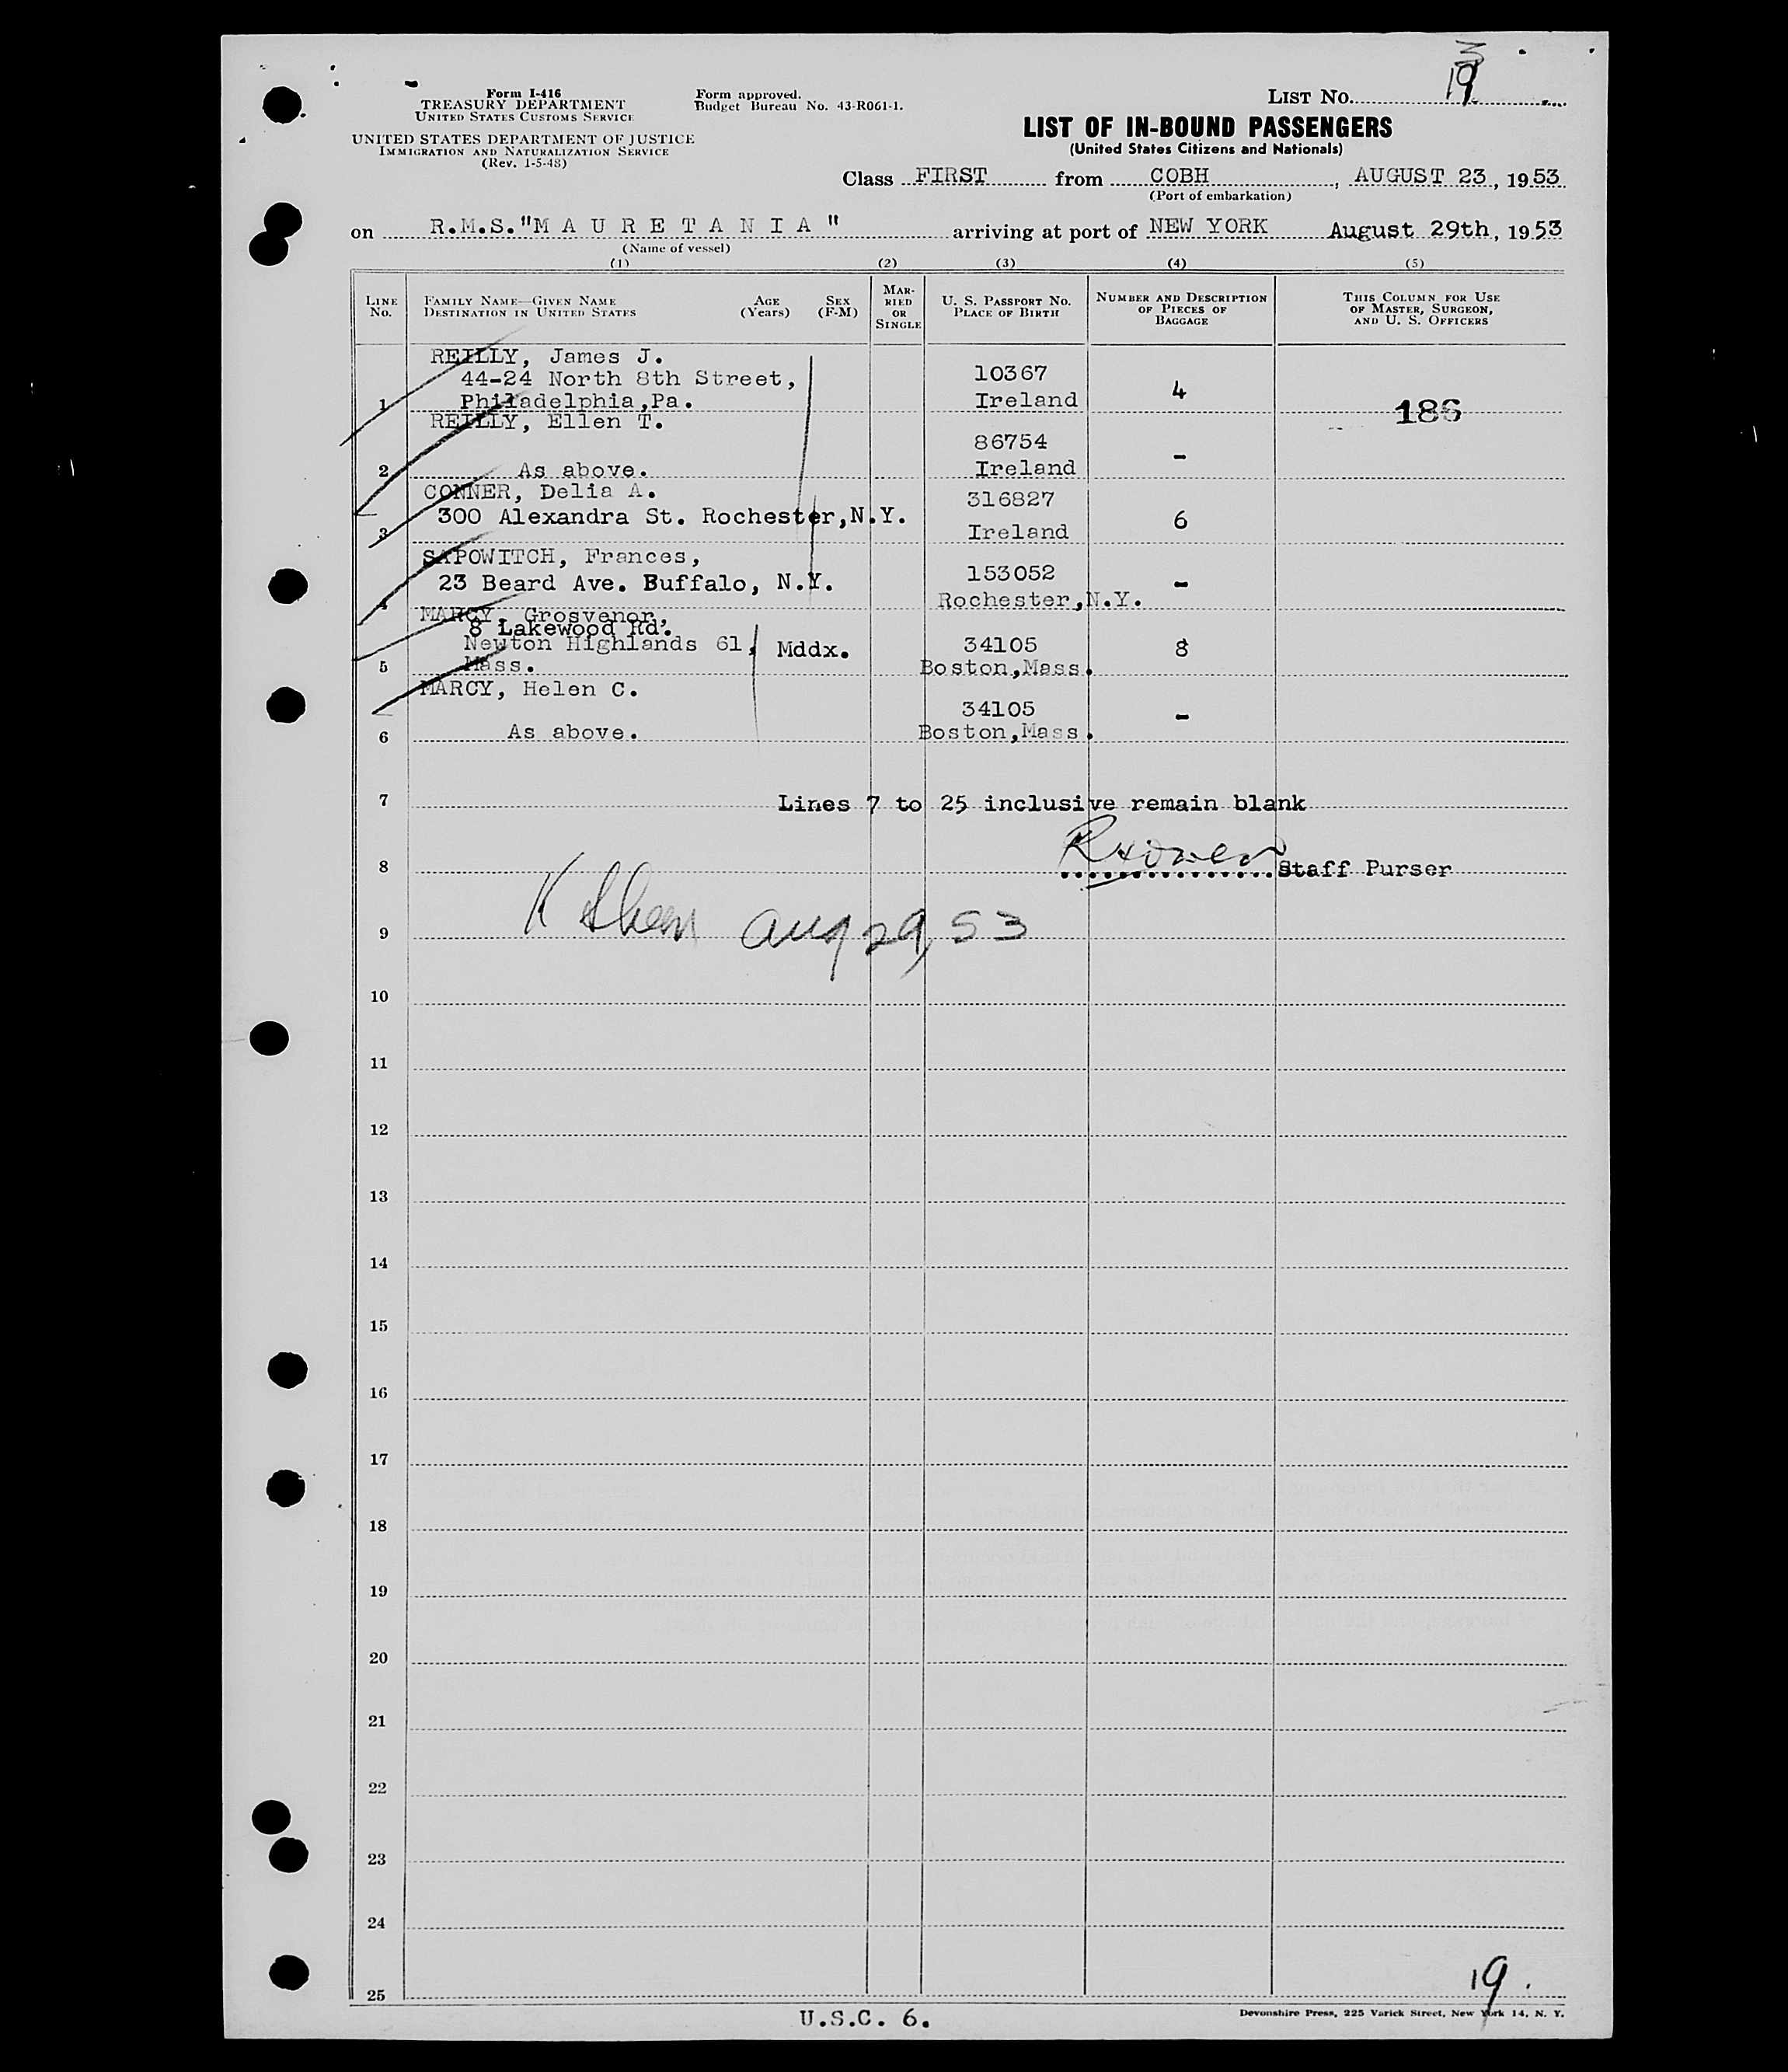 3
19
Form I-416
TREASURY DEPARTMENT
UNITED STATES CUSTOMS SERVICE
UNITED STATES DEPARTMENT OF JUSTICE
IMMIGRATION AND NATURALIZATION SERVICE
(Rev. 1-5-48)
Form approved.
Budget Bureau No. 43-R061-1.
LIST NO.
LIST OF IN-BOUND PASSENGERS
(United States Citizens and Nationals)
Class FIRST from COBH, AUGUST 23, 1953
(Port of embarkation)
on R.M.S."M A U R E T A N I A" arriving at port of NEW YORK August 29th, 1953
(Name of vessel)
(1) (2) (3) (4) (5)
LINE NO.
FAMILY NAME—GIVEN NAME
DESTINATION IN UNITED STATES
AGE (Years)
SEX (F-M)
MARRIED OR SINGLE
U. S. PASSPORT NO.
PLACE OF BIRTH
NUMBER AND DESCRIPTION OF PIECES OF BAGGAGE
THIS COLUMN FOR USE OF MASTER, SURGEON, AND U. S. OFFICERS
REILLY, James J.
44-24 North 8th Street, 10367
1 Philadelphia,Pa. Ireland 4 186
REILLY, Ellen T.
86754
2 As above. Ireland -
CONNER, Delia A. 316827
300 Alexandra St. Rochester,N.Y. 6
3 Ireland
SAPOWITCH, Frances,
23 Beard Ave. Buffalo, N.Y. 153052 -
4 Rochester,N.Y.
MARCY, Grosvenor,
8 Lakewood Rd.
Newton Highlands 61, Mddx. 34105 8
5 Mass. Boston,Mass.
MARCY, Helen C.
34105 -
6 As above. Boston,Mass.
7 Lines 7 to 25 inclusive remain blank
8 Staff Purser
9 Aug 29, 53
10
11
12
13
14
15
16
17
18
19
20
21
22
23
24
25
19.
U.S.C. 6.
Devonshire Press, 225 Varick Street, New York 14, N. Y.